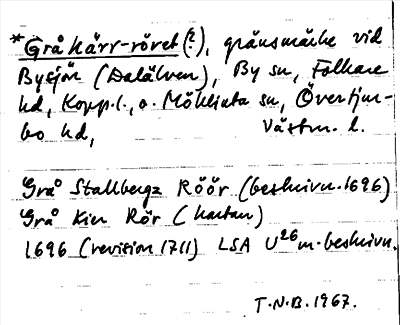 *Gråkärr-röret (?), gränsmärke vid
Bysjön (Dalälven), By sn, Folkare
hd, Kopp. l., o. Möklinta sn, Övertjur-
bo hd, Västm. l.
Grå Stallbergz Röör (beskrivn. 1696)
Grå Kier Rör (kartan)
1696 (revition 1711) LSA U26 m. beskrivn.
T.N.B. 1967.